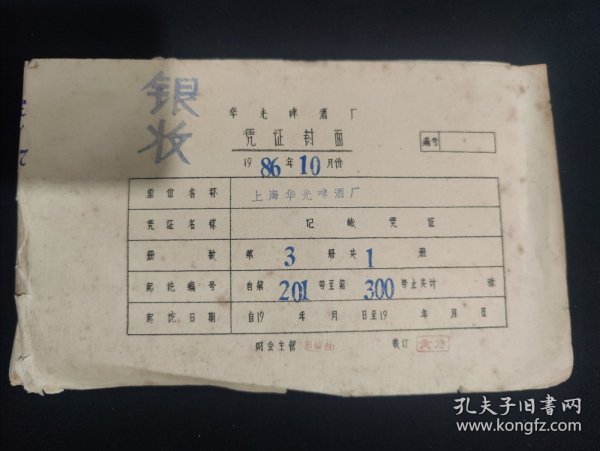 银
收
华光啤酒厂
凭证封面
编号
1986年10月份
单位名称 上海华光啤酒厂
凭证名称 记帐凭证
册数 第3册共1册
起讫编号 自第201号至第300号止共计 张
起讫日期 自19 年 月 日至19 年 月 日
财会主管 装订
孔夫子旧书网
www.kongfz.com